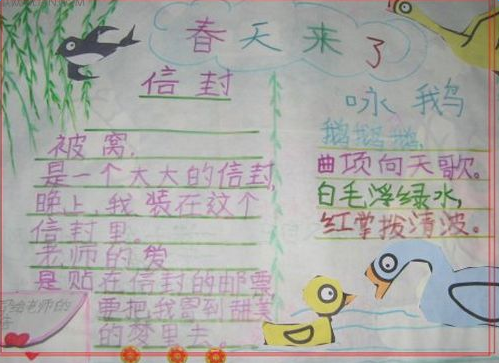 春天来了
信封
被窝,
是一个大大的信封,
晚上,我装在这个
信封里。
老师的爱
是贴在信封的邮票
要把我
的梦里去。
写给老师的
咏 鹅
鹅鹅鹅,
曲项向天歌。
白毛浮绿水,
红掌拨清波。